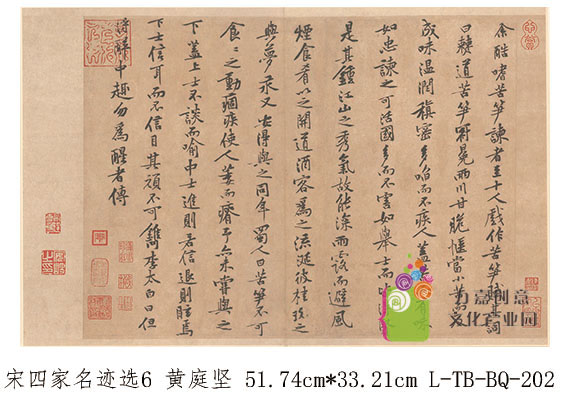 余酷嗜苦笋諫者至十人戲作苦笋賦其詞
曰僰道苦笋冠冕兩川甘脆愜當小苦而反
成味温潤稹密多啗而不疾人蓋苦而有味
如忠諫之可活國多而不害如舉士而
是其鍾江山之秀氣故能深雨露而避風
煙食肴以之開道酒客為之流涎彼桂玫之
與夢永又安得與之同年蜀人曰苦笋不可
食〻之動痼疾使人萎而瘠予亦未甞與之
下蓋上士不談而喻中士進則若信退則眩焉
下士信耳而不信目其頑不可鐫李太白曰但
得醉中趣勿為醒者傳
方嘉創意
文化產业园
宋四家名迹选6 黄庭坚 51.74cm*33.21cm L-TB-BQ-202